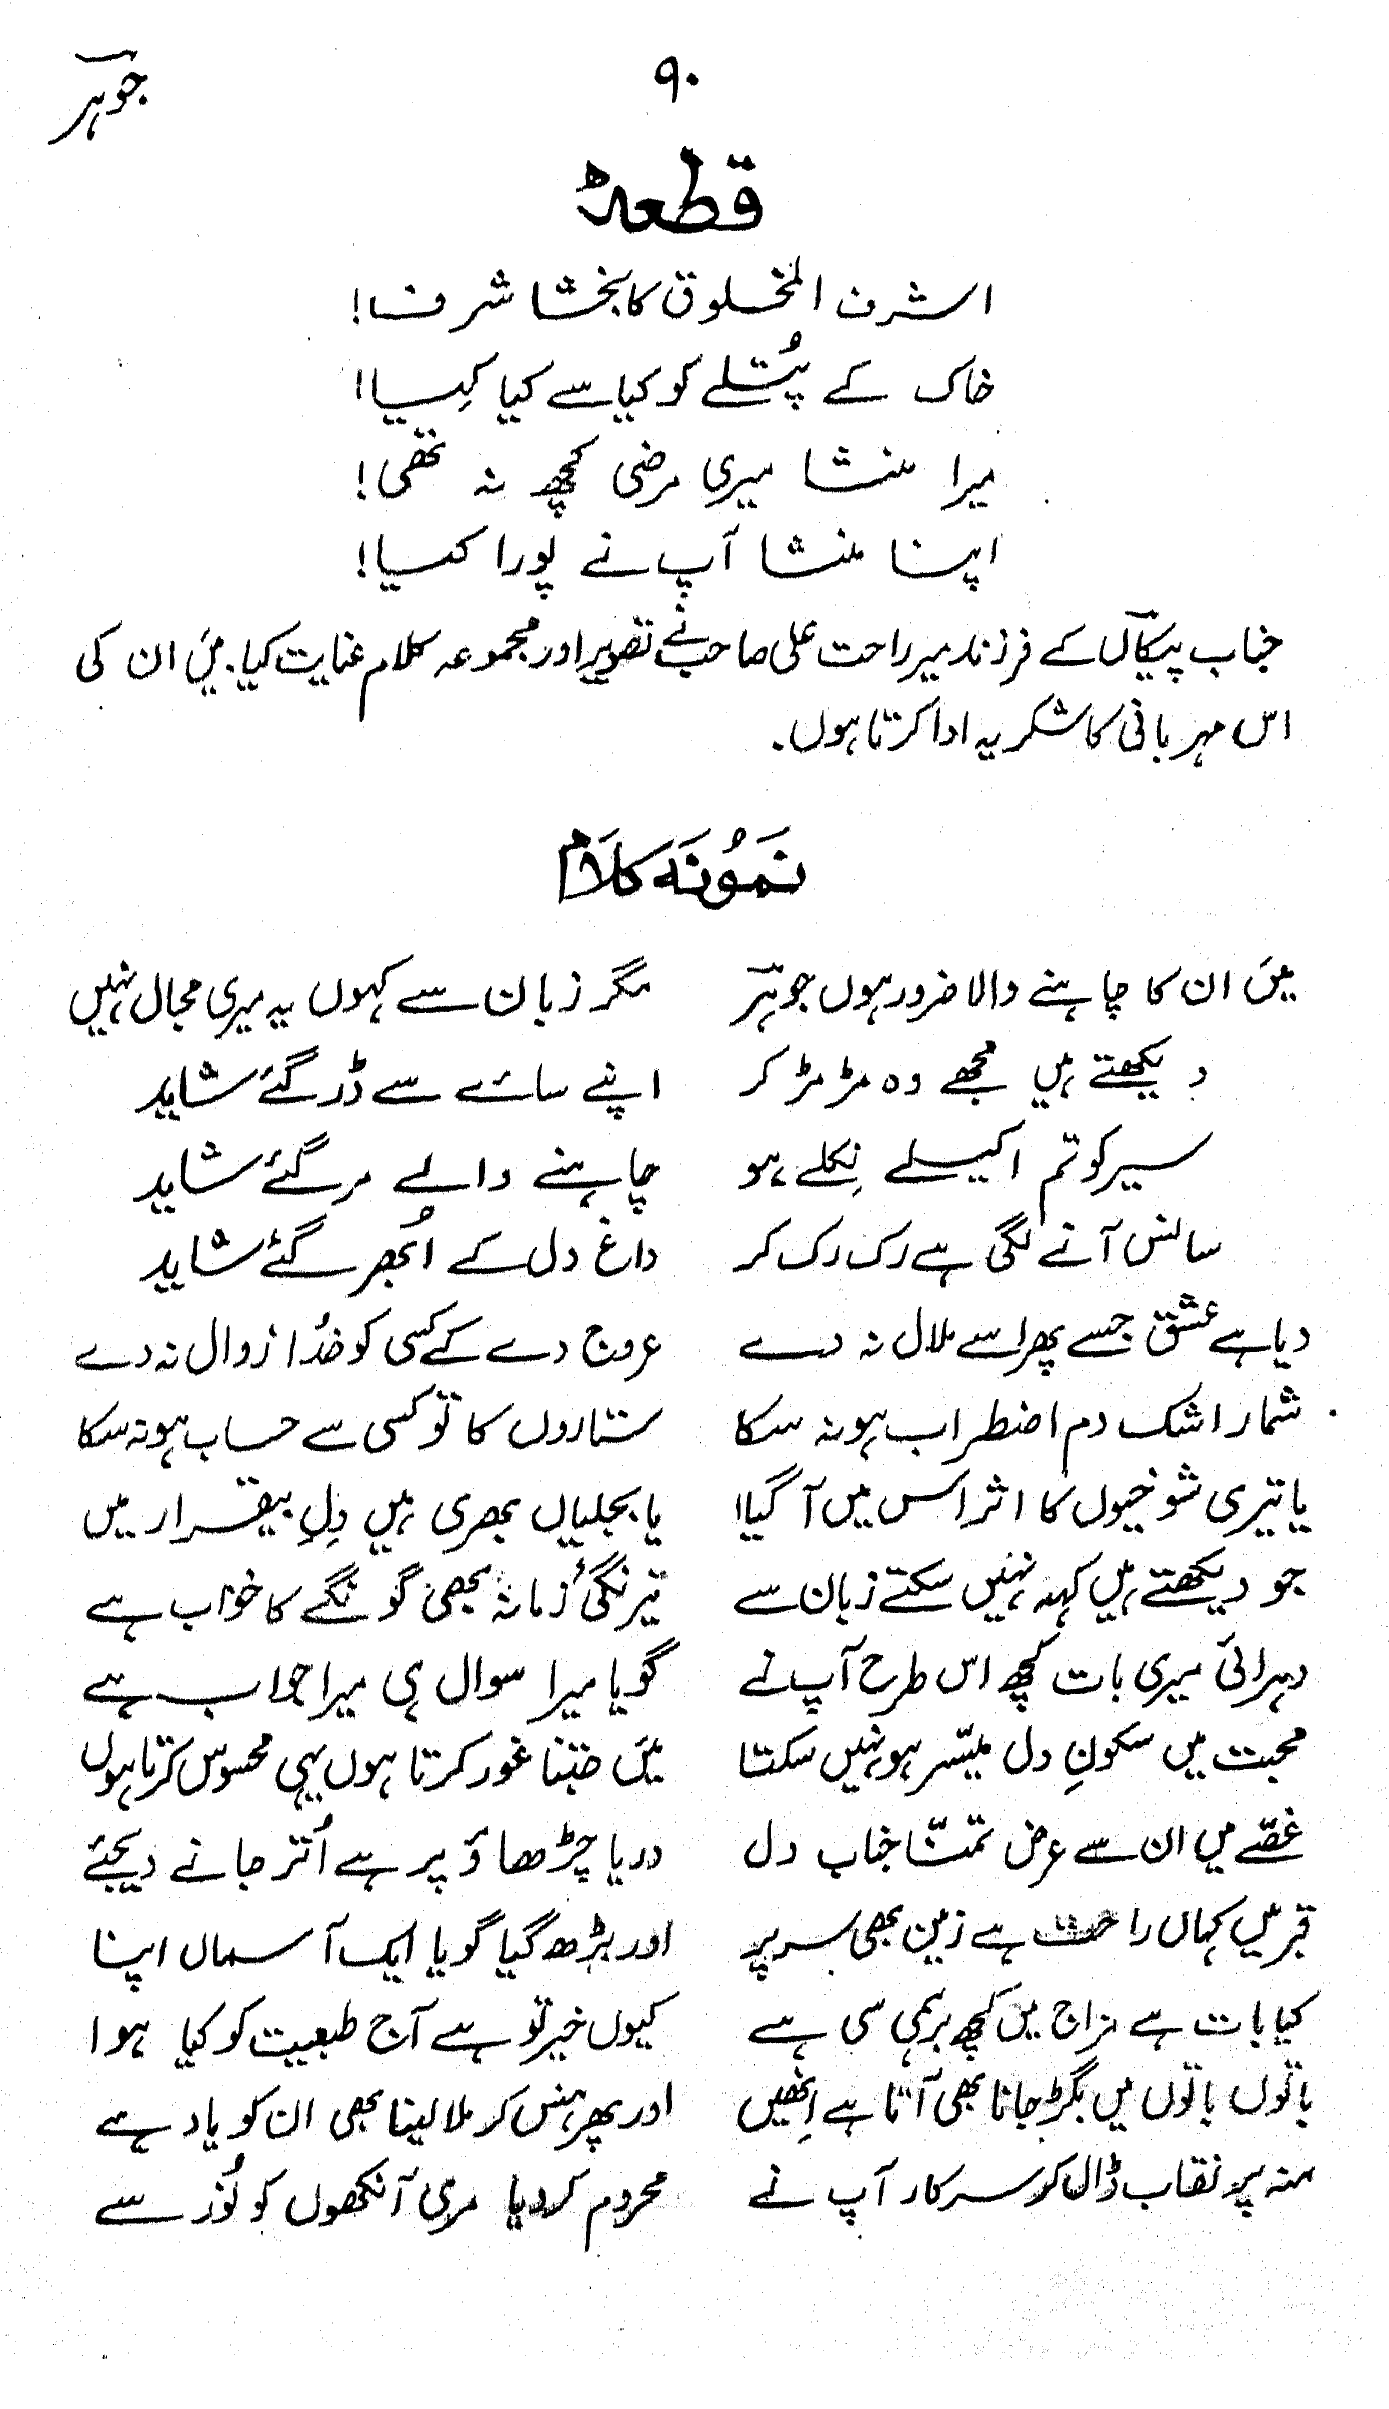 ۹۰
جوہر
قطعہ
اشرف المخلوق کا بخشا شرف!
خاک کے پُتلے کو کیا سے کیا کِیا!
میرا منشا میری مرضی کچھ نہ تھی!
اپنا منشا آپ نے پورا کیا!
جناب پیکاں کے فرزند میر راحت علی صاحب نے تصویر اور مجموعہ کلام عنایت کیا۔ میں ان کی
اس مہربانی کا شکریہ ادا کرتا ہوں۔
نَمُونَہ کَلَام
میں ان کا چاہنے والا ضرور ہوں جوہر مگر زبان سے کہوں یہ میری مجال نہیں
دیکھتے ہیں مجھے وہ مڑ مڑ کر اپنے سائے سے ڈر گئے شاید
سیر کو تم اکیلے نِکلے ہو چاہنے والے مر گئے شاید
سانس آنے لگی ہے رک رک کر داغ دل کے اُبھر گئے شاید
دیا ہے عشق جسے پھر اسے ملال نہ دے عروج دے کے کسی کو خُدا زوال نہ دے
شمار اشک دم اضطراب ہو نہ سکا ستاروں کا تو کسی سے حساب ہو نہ سکا
یا تیری شوخیوں کا اثر اس میں آ گیا! یا بجلیاں بھری ہیں دِلِ بیقرار میں
جو دیکھتے ہیں کہہ نہیں سکتے زبان سے نیرنگیٔ زمانہ بھی گونگے کا خواب ہے
دہرائی میری بات کچھ اس طرح آپ نے گویا میرا سوال ہی میرا جواب ہے
محبت میں سکونِ دل میسّر ہو نہیں سکتا میں جتنا غور کرتا ہوں یہی محسوس کرتا ہوں
غصّے میں ان سے عرض تمنّا جناب دل دریا چڑھاؤ پر ہے اُتر جانے دیجئے
قبر میں کہاں راحت ہے زمین بھی سر پر اور بڑھ گیا گویا ایک آسماں اپنا
کیا بات ہے مزاج میں کچھ برہمی سی ہے کیوں خیر تو ہے آج طبعیت کو کیا ہوا
باتوں باتوں میں بگڑ جانا بھی آتا ہے اِنھیں اور پھر ہنس کر ملا لینا بھی ان کو یاد ہے
منہ پر نقاب ڈال کر سرکار آپ نے محروم کر دیا مری آنکھوں کو نُور سے